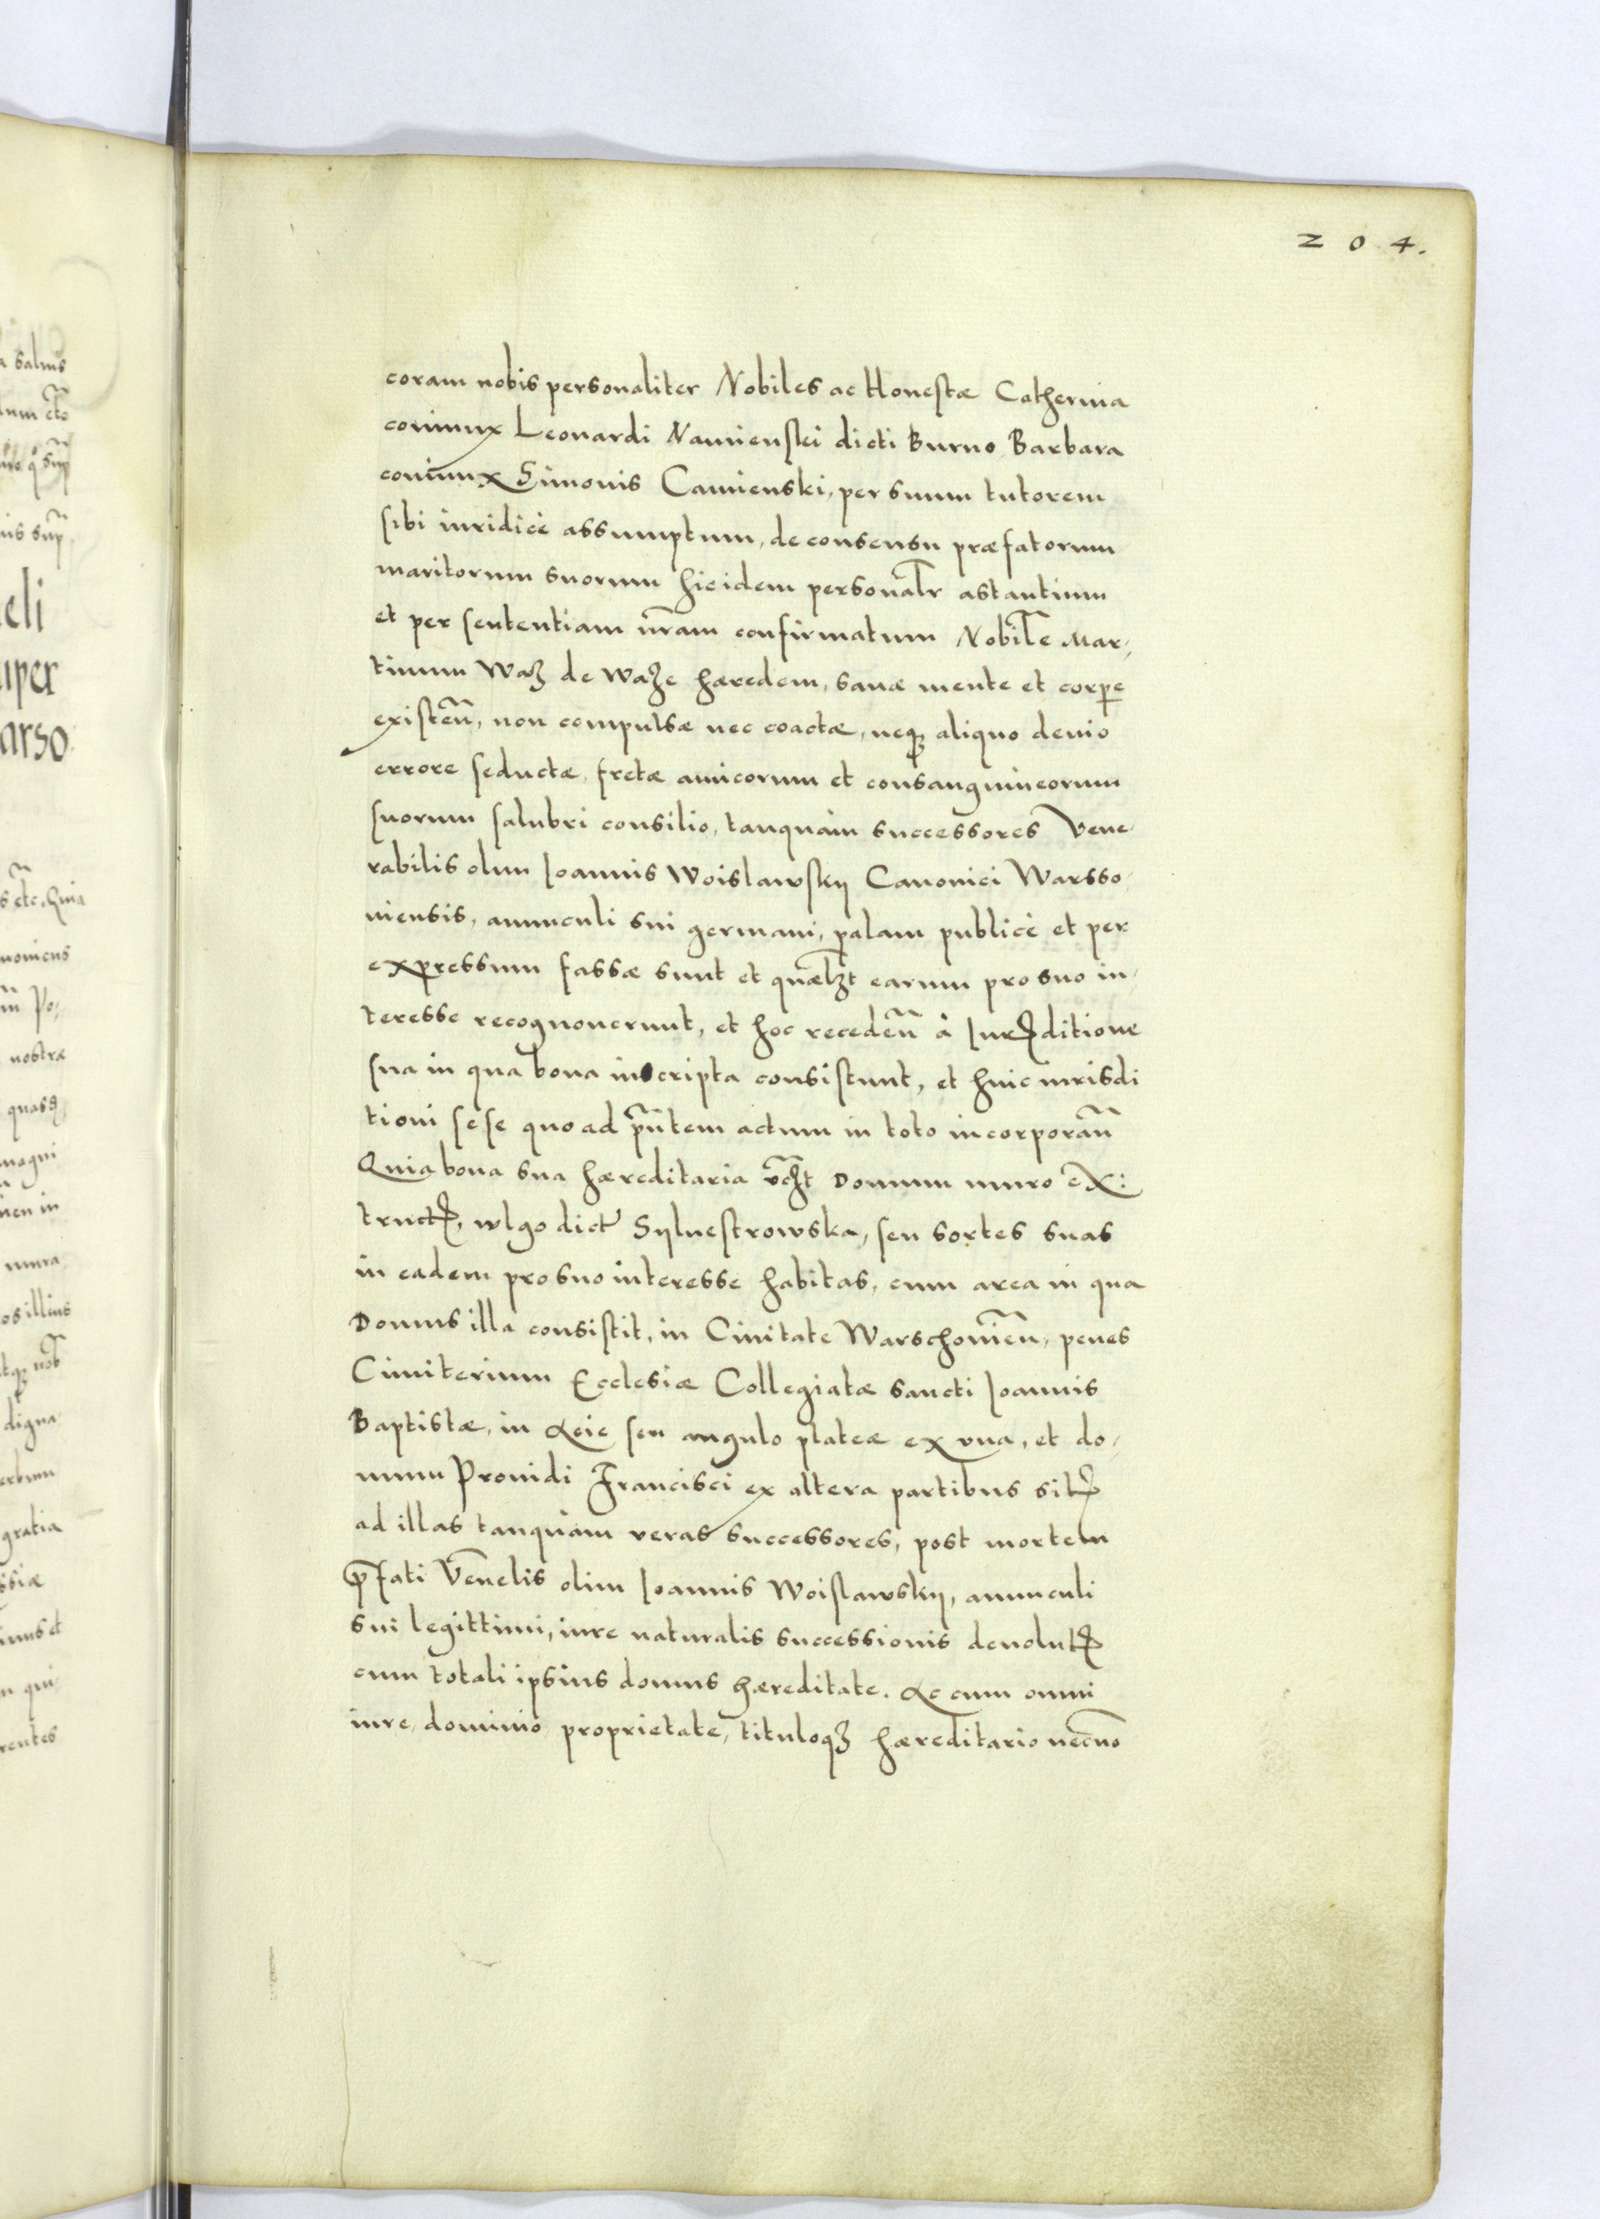 204.
coram nobis personaliter Nobiles ac Honestæ Catherina
coniunx Leonardi Namienskei dicti Burno Barbara
coniunx Simonis Camienski, per suum tutorem
sibi iuridicè assumptum, de consensu præfatorum
maritorum suorum hicidem personalr̃ astantium
et per sententiam nr̃am confirmatum Nobilẽ Mar-
tinum Waż de Waże hæredem, sanæ mente et corpe
existeñ, non compulsæ nec coactæ, neqꝫ aliquo deuio
errore seductæ, fretæ amicorum et consanguineorum
suorum salubri consilio, tanquàm successores Vene-
rabilis olim Ioannis Woislawskÿ Canonici Warsso-
uiensis, auunculi sui germani, palam publicè et per
expressum fassæ sunt et quælꝫt earum pro suo in-
teresse recognouerunt, et hoc recedeñ à Iurꝭditione
sua in qua bona inscripta consistunt, et huic iurisdi
tioni sese quo ad pñtem actum in toto incorporañ
Quia bona sua hæreditaria vꝫt Domum muro ex:
tructꝭ, wlgo dictꝭ Sylvestrowska, seu sortes suas
in eadem pro suo interesse habitas, cum area in qua
Domus illa consistit, in Ciuitate Warschouieñ, penes
Cimiterium Ecclesiæ Collegiatæ sancti Ioannis
Baptistæ, in Acie seu angulo plateæ ex vna, et do-
mum Prouidi Francisci ex altera partibus sitꝭ
ad illas tanquàm veras successores, post mortem
p̃fati Veñelis olim Ioannis Woislawskÿ, auunculi
sui legittimi, iure naturalis successionis deuolutꝭ
cum totali ipsius domus hæreditate. Ac cum omni
iure, dominio proprietate, tituloqꝫ hæreditario necño